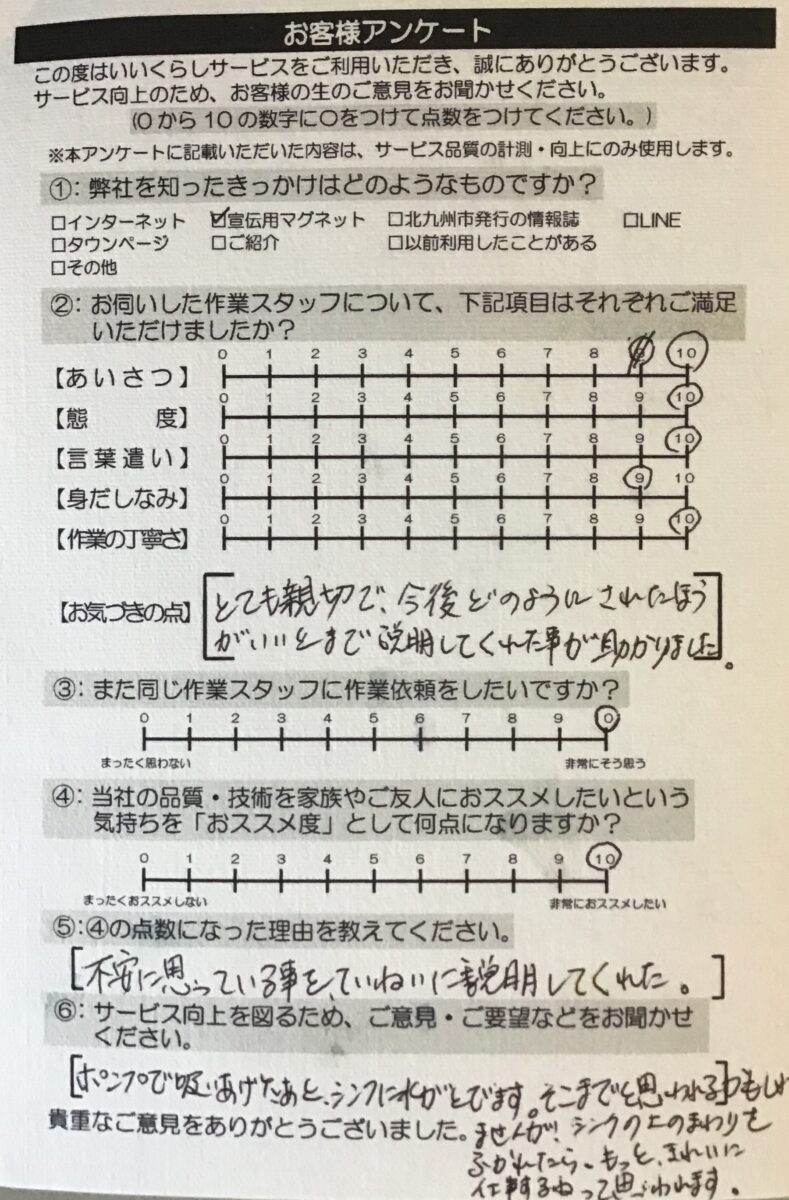 お客様アンケート
この度はいいくらしサービスをご利用いただき、誠にありがとうございます。
サービス向上のため、お客様の生のご意見をお聞かせください。
(0から10の数字に○をつけて点数をつけてください。)
※本アンケートに記載いただいた内容は、サービス品質の計測・向上にのみ使用します。
①：弊社を知ったきっかけはどのようなものですか？
□インターネット ☑宣伝用マグネット □北九州市発行の情報誌 □LINE
□タウンページ □ご紹介 □以前利用したことがある
□その他
②：お伺いした作業スタッフについて、下記項目はそれぞれご満足
いただけましたか？
0 1 2 3 4 5 6 7 8 9 10
【あいさつ】
0 1 2 3 4 5 6 7 8 9 10
【態　度】
0 1 2 3 4 5 6 7 8 9 10
【言葉遣い】
0 1 2 3 4 5 6 7 8 9 10
【身だしなみ】
0 1 2 3 4 5 6 7 8 9 10
【作業の丁寧さ】
【お気づきの点】
とても親切で、今後どのようにされたほう
がいいとまで説明してくれた事が助かりました。
③：また同じ作業スタッフに作業依頼をしたいですか？
0 1 2 3 4 5 6 7 8 9 0
まったく思わない 非常にそう思う
④：当社の品質・技術を家族やご友人におススメしたいという
気持ちを「おススメ度」として何点になりますか？
0 1 2 3 4 5 6 7 8 9 10
まったくおススメしない 非常におススメしたい
⑤：④の点数になった理由を教えてください。
[不安に思っている事を、ていねいに説明してくれた。]
⑥：サービス向上を図るため、ご意見・ご要望などをお聞かせ
ください。
[ポンプで吸いあげたあと、シンクに水がとびます。そこまでと思われる]かもしれ
貴重なご意見をありがとうございました。
ませんが、シンクの上のまわりを
ふかれたら、もっと、きれいに
仕事するねって思われます。